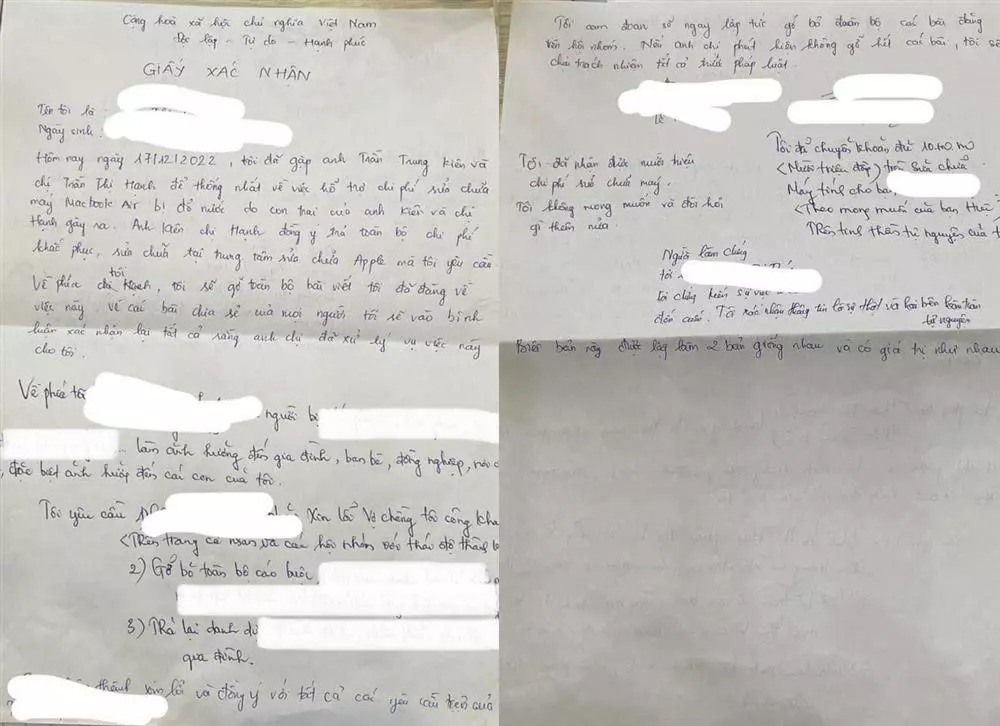 Cộng hoà xã hội chủ nghĩa Việt Nam
Độc lập - Tự do - Hạnh phúc
GIẤY XÁC NHẬN
Tên tôi là
Ngày sinh:
Hôm nay ngày 17/12/2022, tôi đã gặp anh Trần Trung Kiên và
chị Trần Thị Hạnh để thống nhất về việc hỗ trợ chi phí sửa chữa
máy Macbook Air bị đổ nước do con trai của anh Kiên và chị
Hạnh gây ra. Anh Kiên chị Hạnh đồng ý trả toàn bộ chi phí
khắc phục, sửa chữa tại trung tâm sửa chữa Apple mà tôi yêu cầu.
Về phía tôi, tôi sẽ gỡ toàn bộ bài viết tôi đã đăng về
việc này. Về các bài chia sẻ của mọi người tôi sẽ vào bình
luận xác nhận lại tất cả rằng anh chị đã xử lý vụ việc này
cho tôi.
Về phía tôi
người bị
làm ảnh hưởng đến gia đình, bạn bè, đồng nghiệp,
đặc biệt ảnh hưởng đến các con của tôi.
Tôi yêu cầu
Xin lỗi vợ chồng tôi công kha
<Trên trang cá nhân và các hội nhóm với thái độ thành
2) Gỡ bỏ toàn bộ cáo buộc
3) Trả lại danh dự
gia đình.
thành xin lỗi và đồng ý với tất cả các yêu cầu trên của
Tôi cam đoan sẽ ngay lập tức gỡ bỏ toàn bộ các bài đăng
trên hội nhóm. Nếu anh chị phát hiện không gỡ hết các bài, tôi sẽ
chịu trách nhiệm tất cả trước pháp luật.
Tôi đã nhận được mười triệu
chi phí sửa chữa máy.
Tôi không mong muốn và đòi hỏi
gì thêm nữa.
Tôi đã chuyển khoản đủ
<Mười triệu đồng> sửa chữa
Máy tính cho bạn
<Theo mong muốn của bạn
Trên tinh thần tự nguyện của t
Người làm chứng
tôi
tôi chứng kiến sự việc
đến cuối. Tôi xác nhận thông tin là sự thật và hai bên hoàn toàn
tự nguyện
Biên bản này được lập làm 2 bản giống nhau và có giá trị như nhau